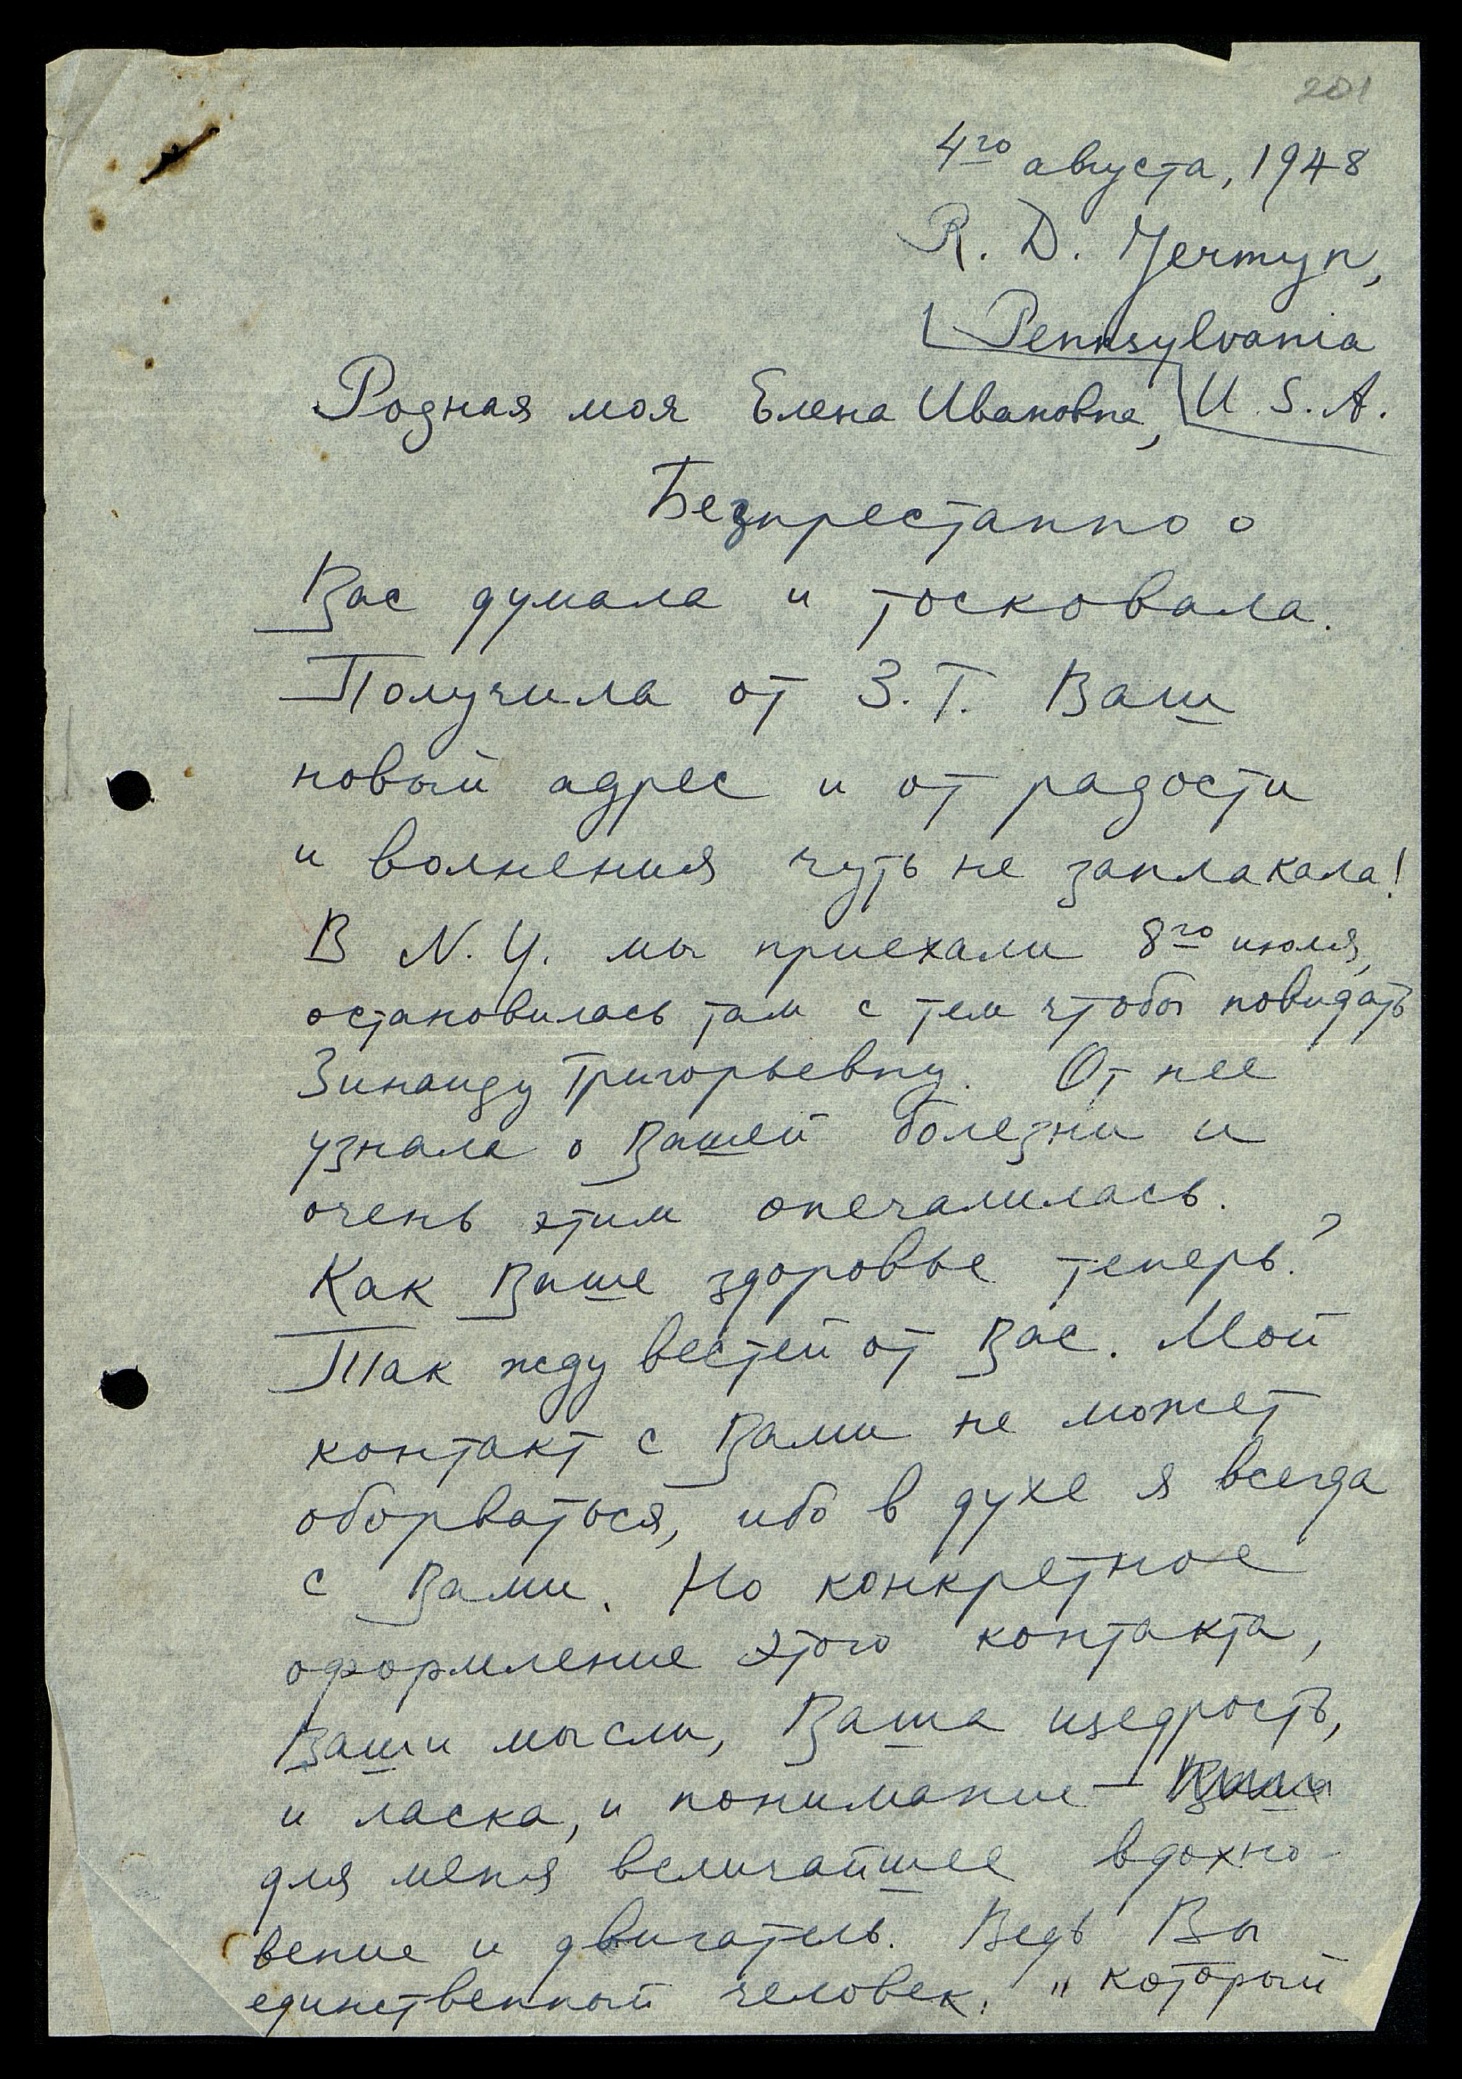 201
4го августа, 1948
R. D. Jermyn,
Pennsylvania
U. S. A.
Родная моя Елена Ивановна,
Безпрестанно о
Вас думала и тосковала.
Получила от З. Г. Ваш
новый адрес и от радости
и волнения чуть не заплакала!
В N. Y. мы приехали 8го июля,
остановилась там с тем чтобы повидать
Зинаиду Григорьевну. От нее
узнала о Вашей болезни и
очень этим опечалилась.
Как Ваше здоровье теперь?
Так жду вестей от Вас. Мой
контакт с Вами не может
оборваться, ибо в духе я всегда
с Вами. Но конкретное
оформление этого контакта,
Ваши мысли, Ваша щедрость,
и ласка, и понимание –
для меня величайшее вдохно-
вение и двигатель. Ведь Вы
единственный человек, "который